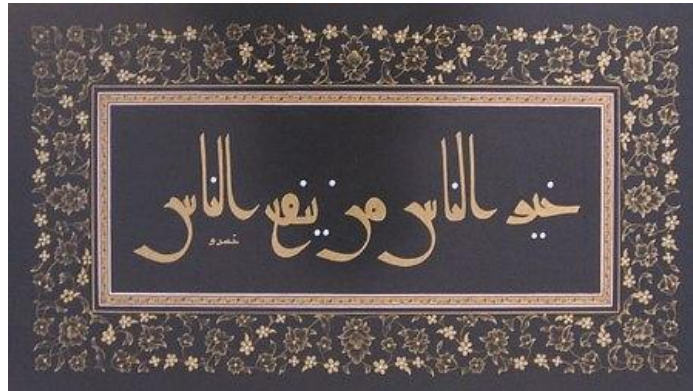 خير الناس من ينفع الناس
خسرو